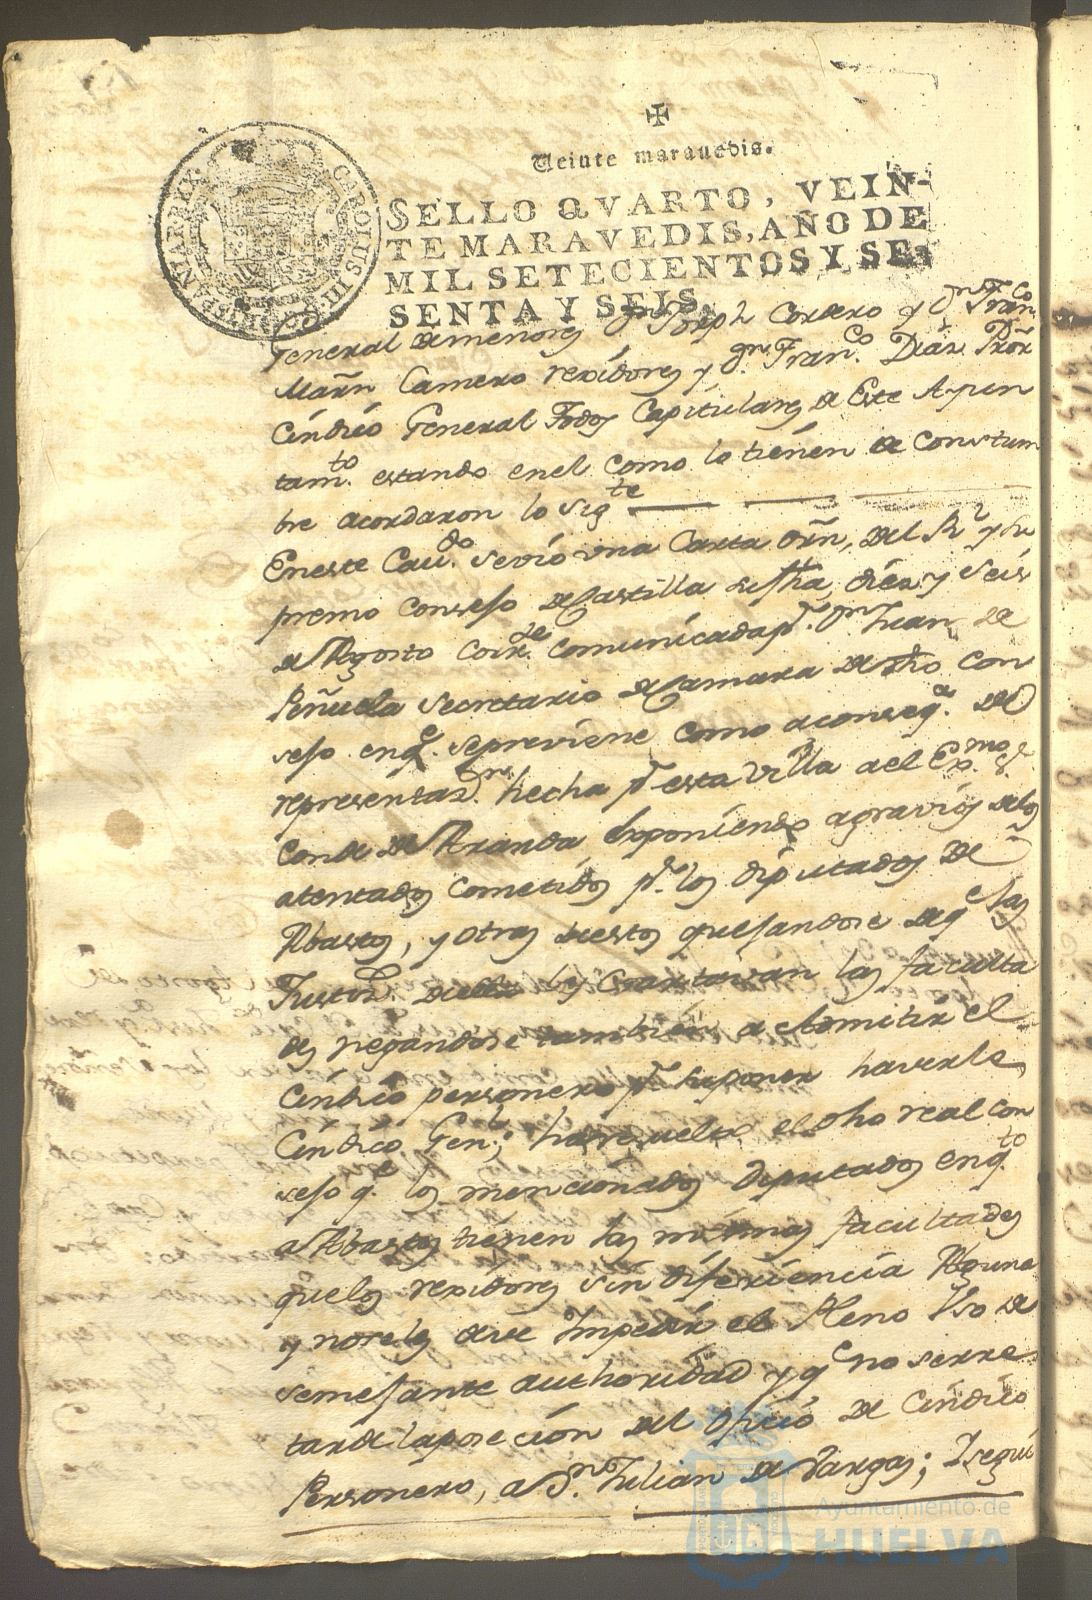 ✠
Veinte marauedis.
SELLO QVARTO, VEIN-
TE MARAVEDIS, AÑO DE
MIL SETECIENTOS Y SE-
SENTA Y SEIS.
CAROLUS III D G HISPANIAR REX
General de menores Dn Joseph Cordero y Dn Franco
Marñ Camero rexidores y Dn Franco Diaz Prõr
Cindico General Todos Capitulares de Este Ayun
tamto estando en el como lo tienen de constum
bre acordaron lo sigte
En este Cavdo se vio una Carta Orñ, del Rl y Su
premo Consejo de Castilla su fha diez y seis
de Agosto Corrte comunicada pr Dn Juan de
Peñuela Secretario de Camara de dho Con
sejo en qe se previene como a conseqa de
representazn hecha pr esta Villa a el Exmo Sr
Conde de Aranda Exponiendo agravios de los
atentados cometidos pr los diputados de
Abastos, y otros puestos quejandose de qe las
Justizs de ella les Coartavan las faculta
des negandose tambien a admitir el
Cindico personero pr suponer haverle
Cindico Genl; ha resuelto el dho real con
sejo qe los mencionados Diputados en qto
a Abastos tienen las mismas facultades
que los rexidores sin diferiencia Alguna
y no se les deve Impedir el Pleno Uso de
semejante authoridad y qe no se rre
tarde la posecion del oficio de Cindico
Personero, a Dn Julian de Vargas; I segun
Ayuntamiento de
HUELVA